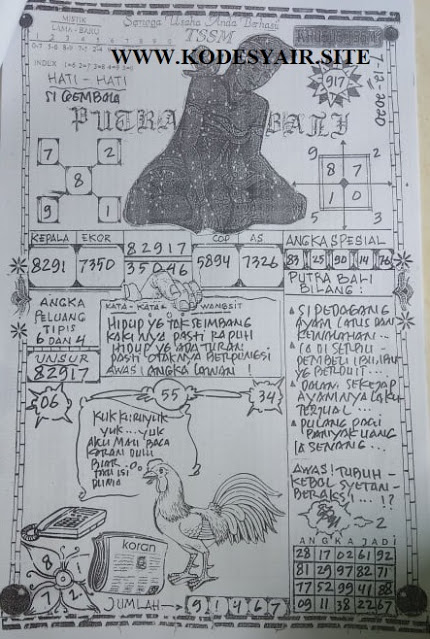 MISTIK
LAMA - BARU
1 2 3 4 5 6 7 8 9 0
Semoga Usaha Anda Berhasil
TSSM
WWW.KODESYAIR.SITE
INDEX
HATI - HATI
SI GEMBALA
917
7-12-2020
PUTRA BALI
7 2
8
9 1
9 2
8 7
1 0
5 3
KEPALA EKOR 82917 COP AS ANGKA SPESIAL
8291 7350 35046 5894 7326 83 25 90 14 76
PUTRA BALI
BILANG :
ANGKA
PELUANG
TIPIS
6 DAN 4
UNSUR
82917
KATA - KATA WANGSIT
HIDUP YG TAK SEIMBANG
KAKI NYA PASTI RAPUH
HIDUP YG ADA TURAN
PASTI OTAKNYA BERFUNGSI
AWAS ! ANGKA LAWAN !
SI PEDAGANG
AYAM LARIS DAN
KEWALAHAN ...
IA DI SERBU -
PEMBELI IBU, IBU
YG BERDUIT ...
DALAM SEKEJAP
AYAMNYA LAKU
TERJUAL ...
PULANG PAGI
BANYAK UANG
IA SENANG ...
AWAS ! TUBUH -
KEBAL SYETAN -
BERAKSI ! ... !?
2
06 55 34
KUK KURUYUK
YUK ... YUK
AKU MAU BACA
KORAN DULU
BIAR
TAU ISI
DUNIA
koran
8 1
7 2
JUMLAH 9 1 4 6 7
ANGKA JADI
28 17 02 61 92
81 29 97 82 71
77 52 99 41 88
09 11 38 22 67